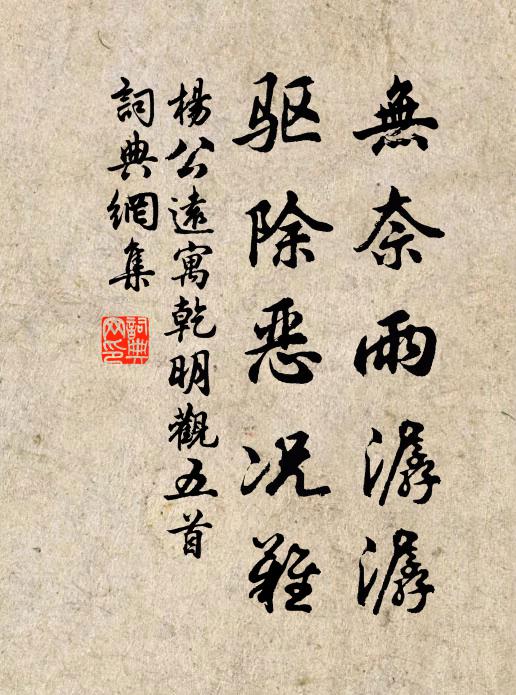 無奈雨潺潺
驱除恶况難
楊公遠寓乾明觀五首
詞典網集
詞典
网印